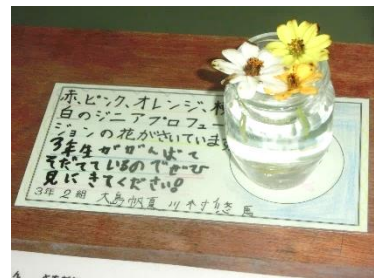 赤、ピンク、オレンジ、
白のジニアプロフュー
ジョンの花がさいています
3年生ががんばって
そだてているのでぜひ
見にきてください!
3年2組